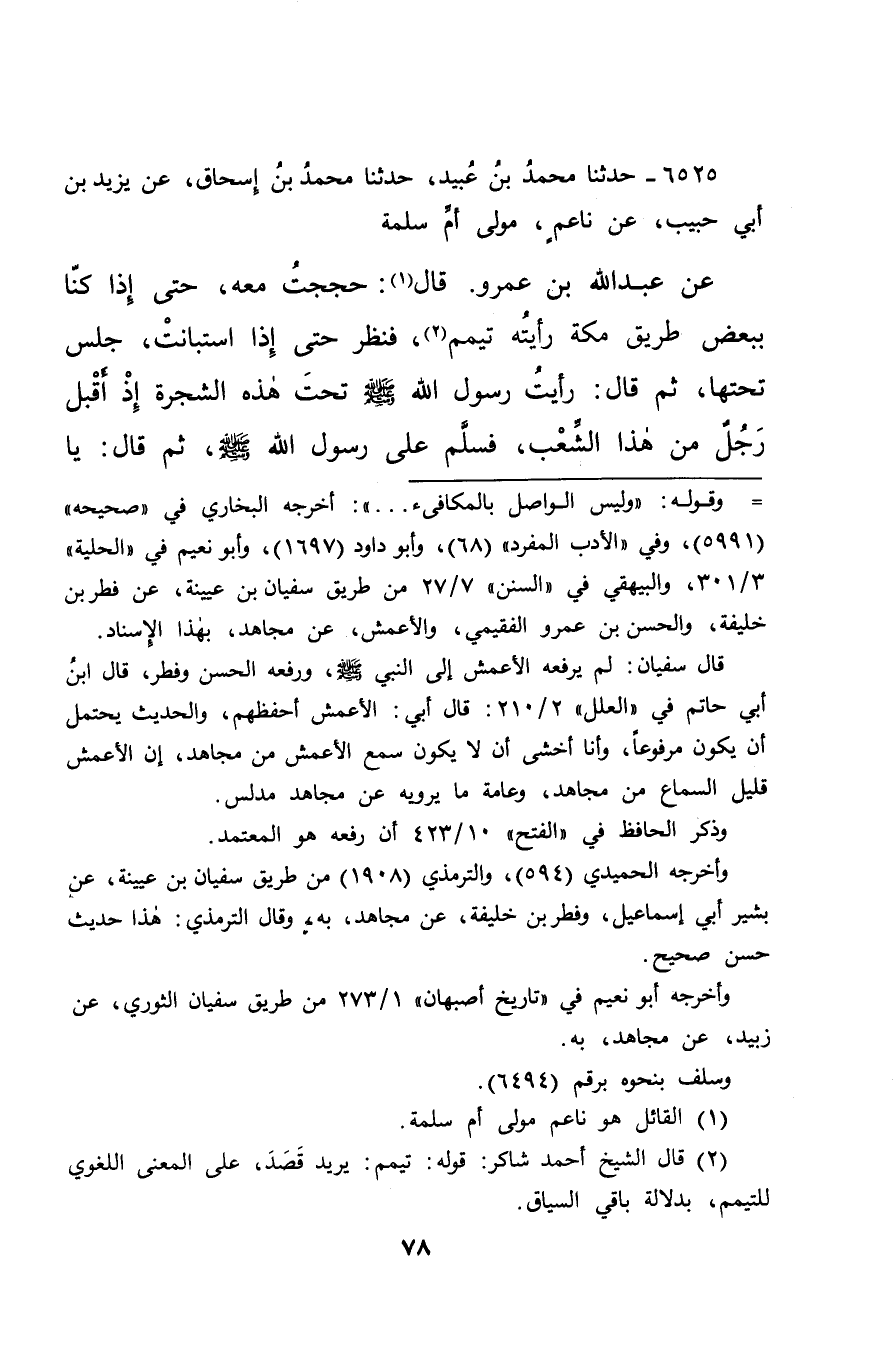 ٦٥٢٥ ـ حدثنا محمدُ بنُ عُبيد، حدثنا محمدُ بنُ إِسحاق، عن يزيد بن
أبي حبيب، عن ناعمٍ، مولى أمِّ سلمة
عن عبدالله بن عمرو. قال(١): حججتُ معه، حتى إِذا كنَّا
ببعض طريق مكة رأيتُه تيمم(٢)، فنظر حتى إِذا استبانتْ، جلس
تحتها، ثم قال: رأيتُ رسول الله ﷺ تحتَ هٰذه الشجرة إِذْ أَقْبل
رَجُلٌ من هٰذا الشِّعْب، فسلَّم على رسول الله ﷺ، ثم قال: يا
= وقوله: «وليس الواصل بالمكافىء...»: أخرجه البخاري في «صحيحه»
(٥٩٩١)، وفي «الأدب المفرد» (٦٨)، وأبو داود (١٦٩٧)، وأبو نعيم في «الحلية»
٣٠١/٣، والبيهقي في «السنن» ٢٧/٧ من طريق سفيان بن عيينة، عن فطر بن
خليفة، والحسن بن عمرو الفقيمي، والأعمش، عن مجاهد، بهٰذا الإِسناد.
قال سفيان: لم يرفعه الأعمش إلى النبي ﷺ، ورفعه الحسن وفطر، قال ابنُ
أبي حاتم في «العلل» ٢١٠/٢: قال أبي: الأعمش أحفظهم، والحديث يحتمل
أن يكون مرفوعاً، وأنا أخشى أن لا يكون سمع الأعمش من مجاهد، إن الأعمش
قليل السماع من مجاهد، وعامة ما يرويه عن مجاهد مدلس.
وذكر الحافظ في «الفتح» ٤٢٣/١٠ أن رفعه هو المعتمد.
وأخرجه الحميدي (٥٩٤)، والترمذي (١٩٠٨) من طريق سفيان بن عيينة، عن
بشير أبي إسماعيل، وفطر بن خليفة، عن مجاهد، به، وقال الترمذي: هٰذا حديث
حسن صحيح.
وأخرجه أبو نعيم في «تاريخ أصبهان» ٢٧٣/١ من طريق سفيان الثوري، عن
زبيد، عن مجاهد، به.
وسلف بنحوه برقم (٦٤٩٤).
(١) القائل هو ناعم مولى أم سلمة.
(٢) قال الشيخ أحمد شاكر: قوله: تيمم: يريد قَصَدَ، على المعنى اللغوي
للتيمم، بدلالة باقي السياق.
٧٨